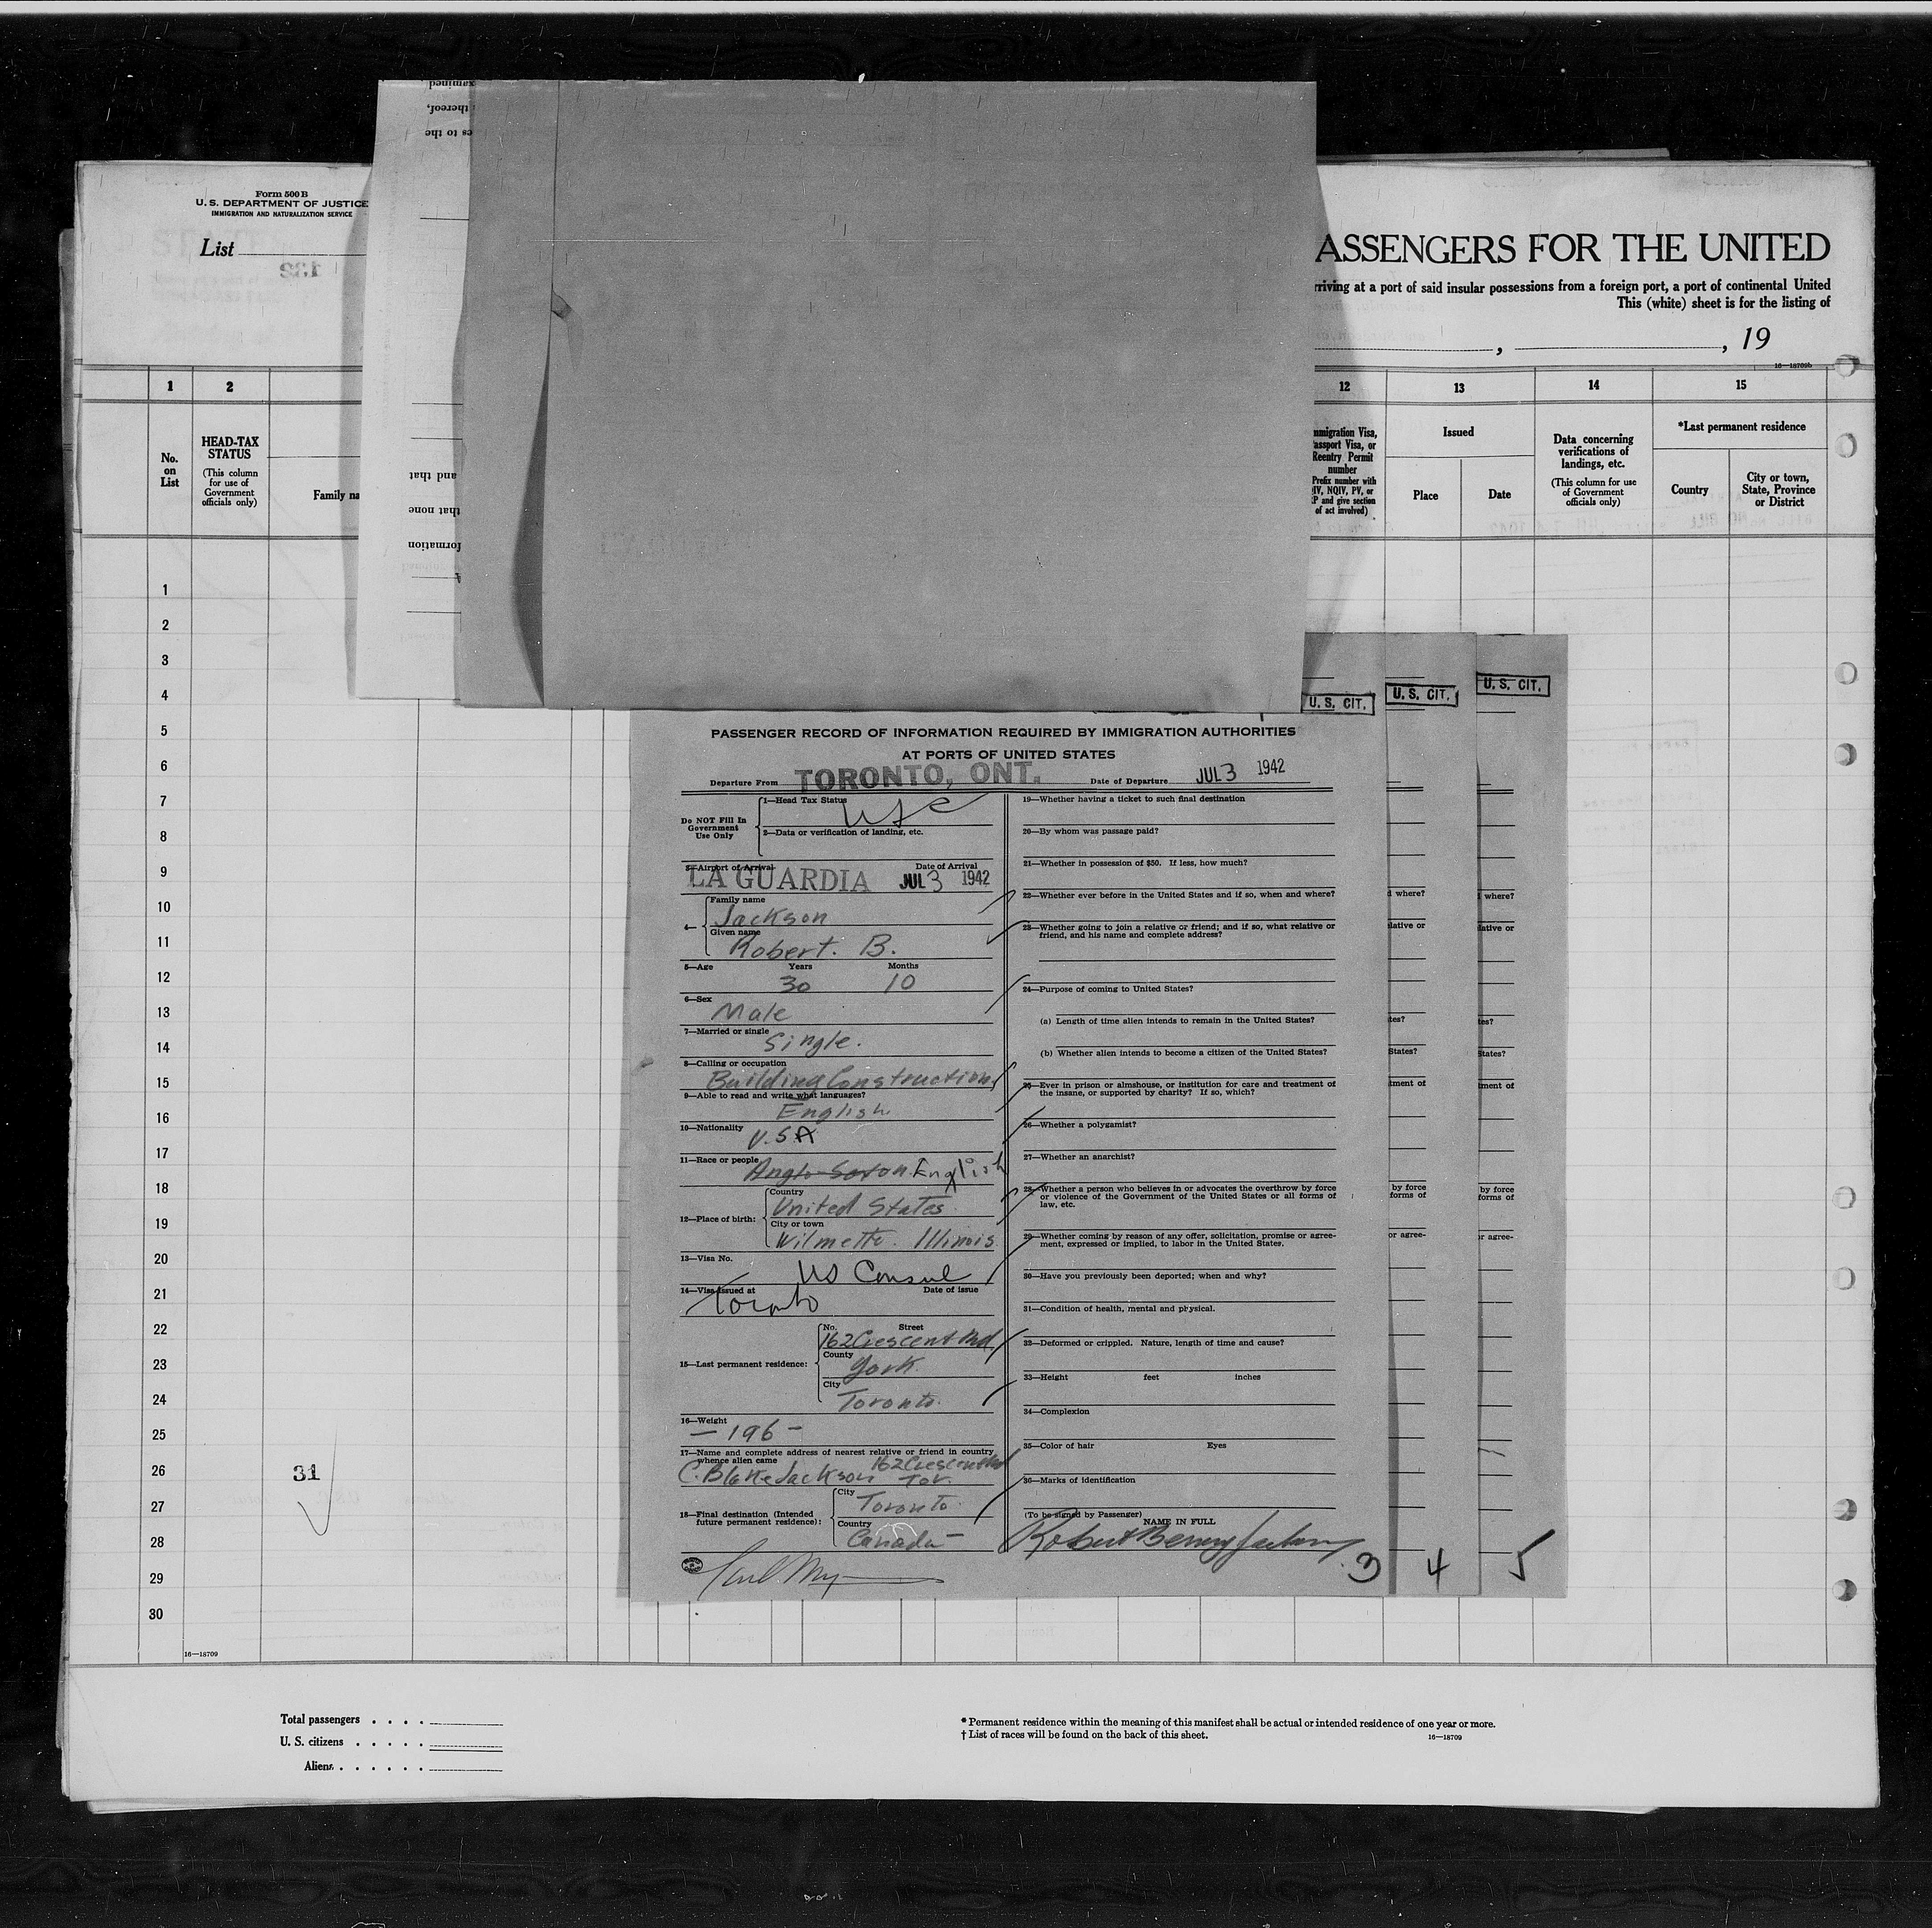 Form 500 B
U. S. DEPARTMENT OF JUSTICE
IMMIGRATION AND NATURALIZATION SERVICE
List
ASSENGERS FOR THE UNITED
rriving at a port of said insular possessions from a foreign port, a port of continental United
This (white) sheet is for the listing of
, , 19
16—18709b
1 2 12 13 14 15
No. on List
HEAD-TAX STATUS
(This column for use of Government officials only)
Family na
mmigration Visa,
assport Visa, or
Reentry Permit
number
Prefix number with
IV, NQIV, PV, or
P and give section
of act involved)
Issued
Place
Date
Data concerning verifications of landings, etc.
(This column for use of Government officials only)
*Last permanent residence
Country
City or town, State, Province or District
xamined
thereof,
es to the
and that
that none
formation
1
2
3
4
5
6
7
8
9
10
11
12
13
14
15
16
17
18
19
20
21
22
23
24
25
26
27
28
29
30
31
16—18709
U. S. CIT.
U. S. CIT.
U. S. CIT.
PASSENGER RECORD OF INFORMATION REQUIRED BY IMMIGRATION AUTHORITIES
AT PORTS OF UNITED STATES
Departure From TORONTO, ONT. Date of Departure JUL 3 1942
Do NOT Fill In Government Use Only
1—Head Tax Status USC
2—Data or verification of landing, etc.
3—Airport of Arrival Date of Arrival
LA GUARDIA JUL 3 1942
4— Family name
Jackson
Given name
Robert. B.
5—Age Years Months
30 10
6—Sex
Male
7—Married or single
Single.
8—Calling or occupation
Building Construction
9—Able to read and write what languages?
English
10—Nationality
U.S.A
11—Race or people
Anglo-Saxon English
12—Place of birth: Country
United States
City or town
Wilmette. Illinois
13—Visa No.
US Consul
14—Visa issued at Date of issue
Toronto
15—Last permanent residence: No. Street
162 Crescent Rd
County
York.
City
Toronto.
16—Weight
— 196 —
17—Name and complete address of nearest relative or friend in country whence alien came
C. Blake Jackson 162 Crescent Rd Tor.
18—Final destination (Intended future permanent residence): City
Toronto.
Country
Canada —
19—Whether having a ticket to such final destination
20—By whom was passage paid?
21—Whether in possession of $50. If less, how much?
22—Whether ever before in the United States and if so, when and where?
23—Whether going to join a relative or friend; and if so, what relative or
friend, and his name and complete address?
24—Purpose of coming to United States?
(a) Length of time alien intends to remain in the United States?
(b) Whether alien intends to become a citizen of the United States?
25—Ever in prison or almshouse, or institution for care and treatment of
the insane, or supported by charity? If so, which?
26—Whether a polygamist?
27—Whether an anarchist?
28—Whether a person who believes in or advocates the overthrow by force
or violence of the Government of the United States or all forms of
law, etc.
29—Whether coming by reason of any offer, solicitation, promise or agree-
ment, expressed or implied, to labor in the United States.
30—Have you previously been deported; when and why?
31—Condition of health, mental and physical.
32—Deformed or crippled. Nature, length of time and cause?
33—Height feet inches
34—Complexion
35—Color of hair Eyes
36—Marks of identification
(To be signed by Passenger)
NAME IN FULL
Robert Jackson
3
4
5
d where?
elative or
tes?
States?
tment of
by force
forms of
or agree-
where?
lative or
tes?
States?
ment of
by force
forms of
r agree-
Total passengers . . . .
U. S. citizens . . . . .
Aliens . . . . . .
* Permanent residence within the meaning of this manifest shall be actual or intended residence of one year or more.
† List of races will be found on the back of this sheet.
16—18709